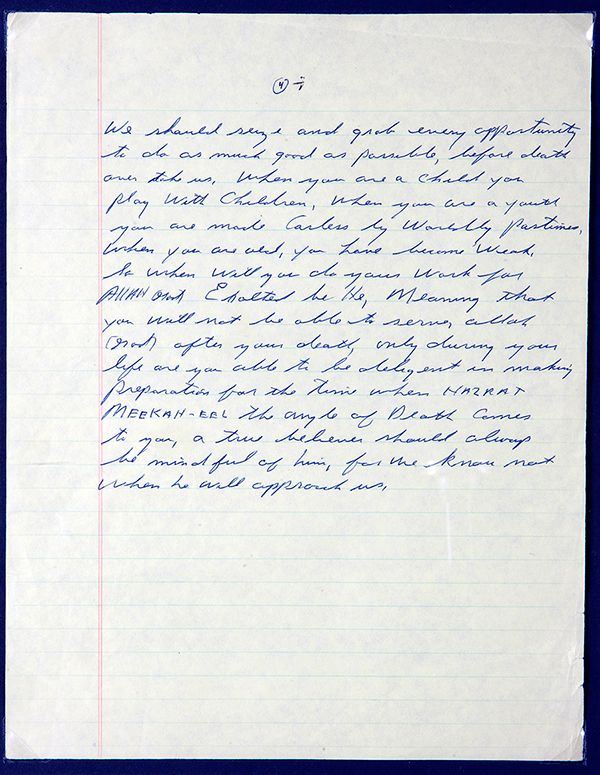 4
We should seize and grab every opportunity
to do as much good as possible, before death
over take us. When you are a child you
play With Children, When you are a youth
you are made Carless by Worldly Pastimes,
When you are old, you have become Weak.
So when Will you do your Work for
AllAH (God) Exalted be He, Meaning that
you will not be able to serve, allah
(God) after your death, only during your
life are you able to be deligent in making
preparation for the time when HAZRAT
MEEKAH-EEL the angle of Death Comes
to you, a true believer should always
be mindful of him, for we know not
When he will approach us.